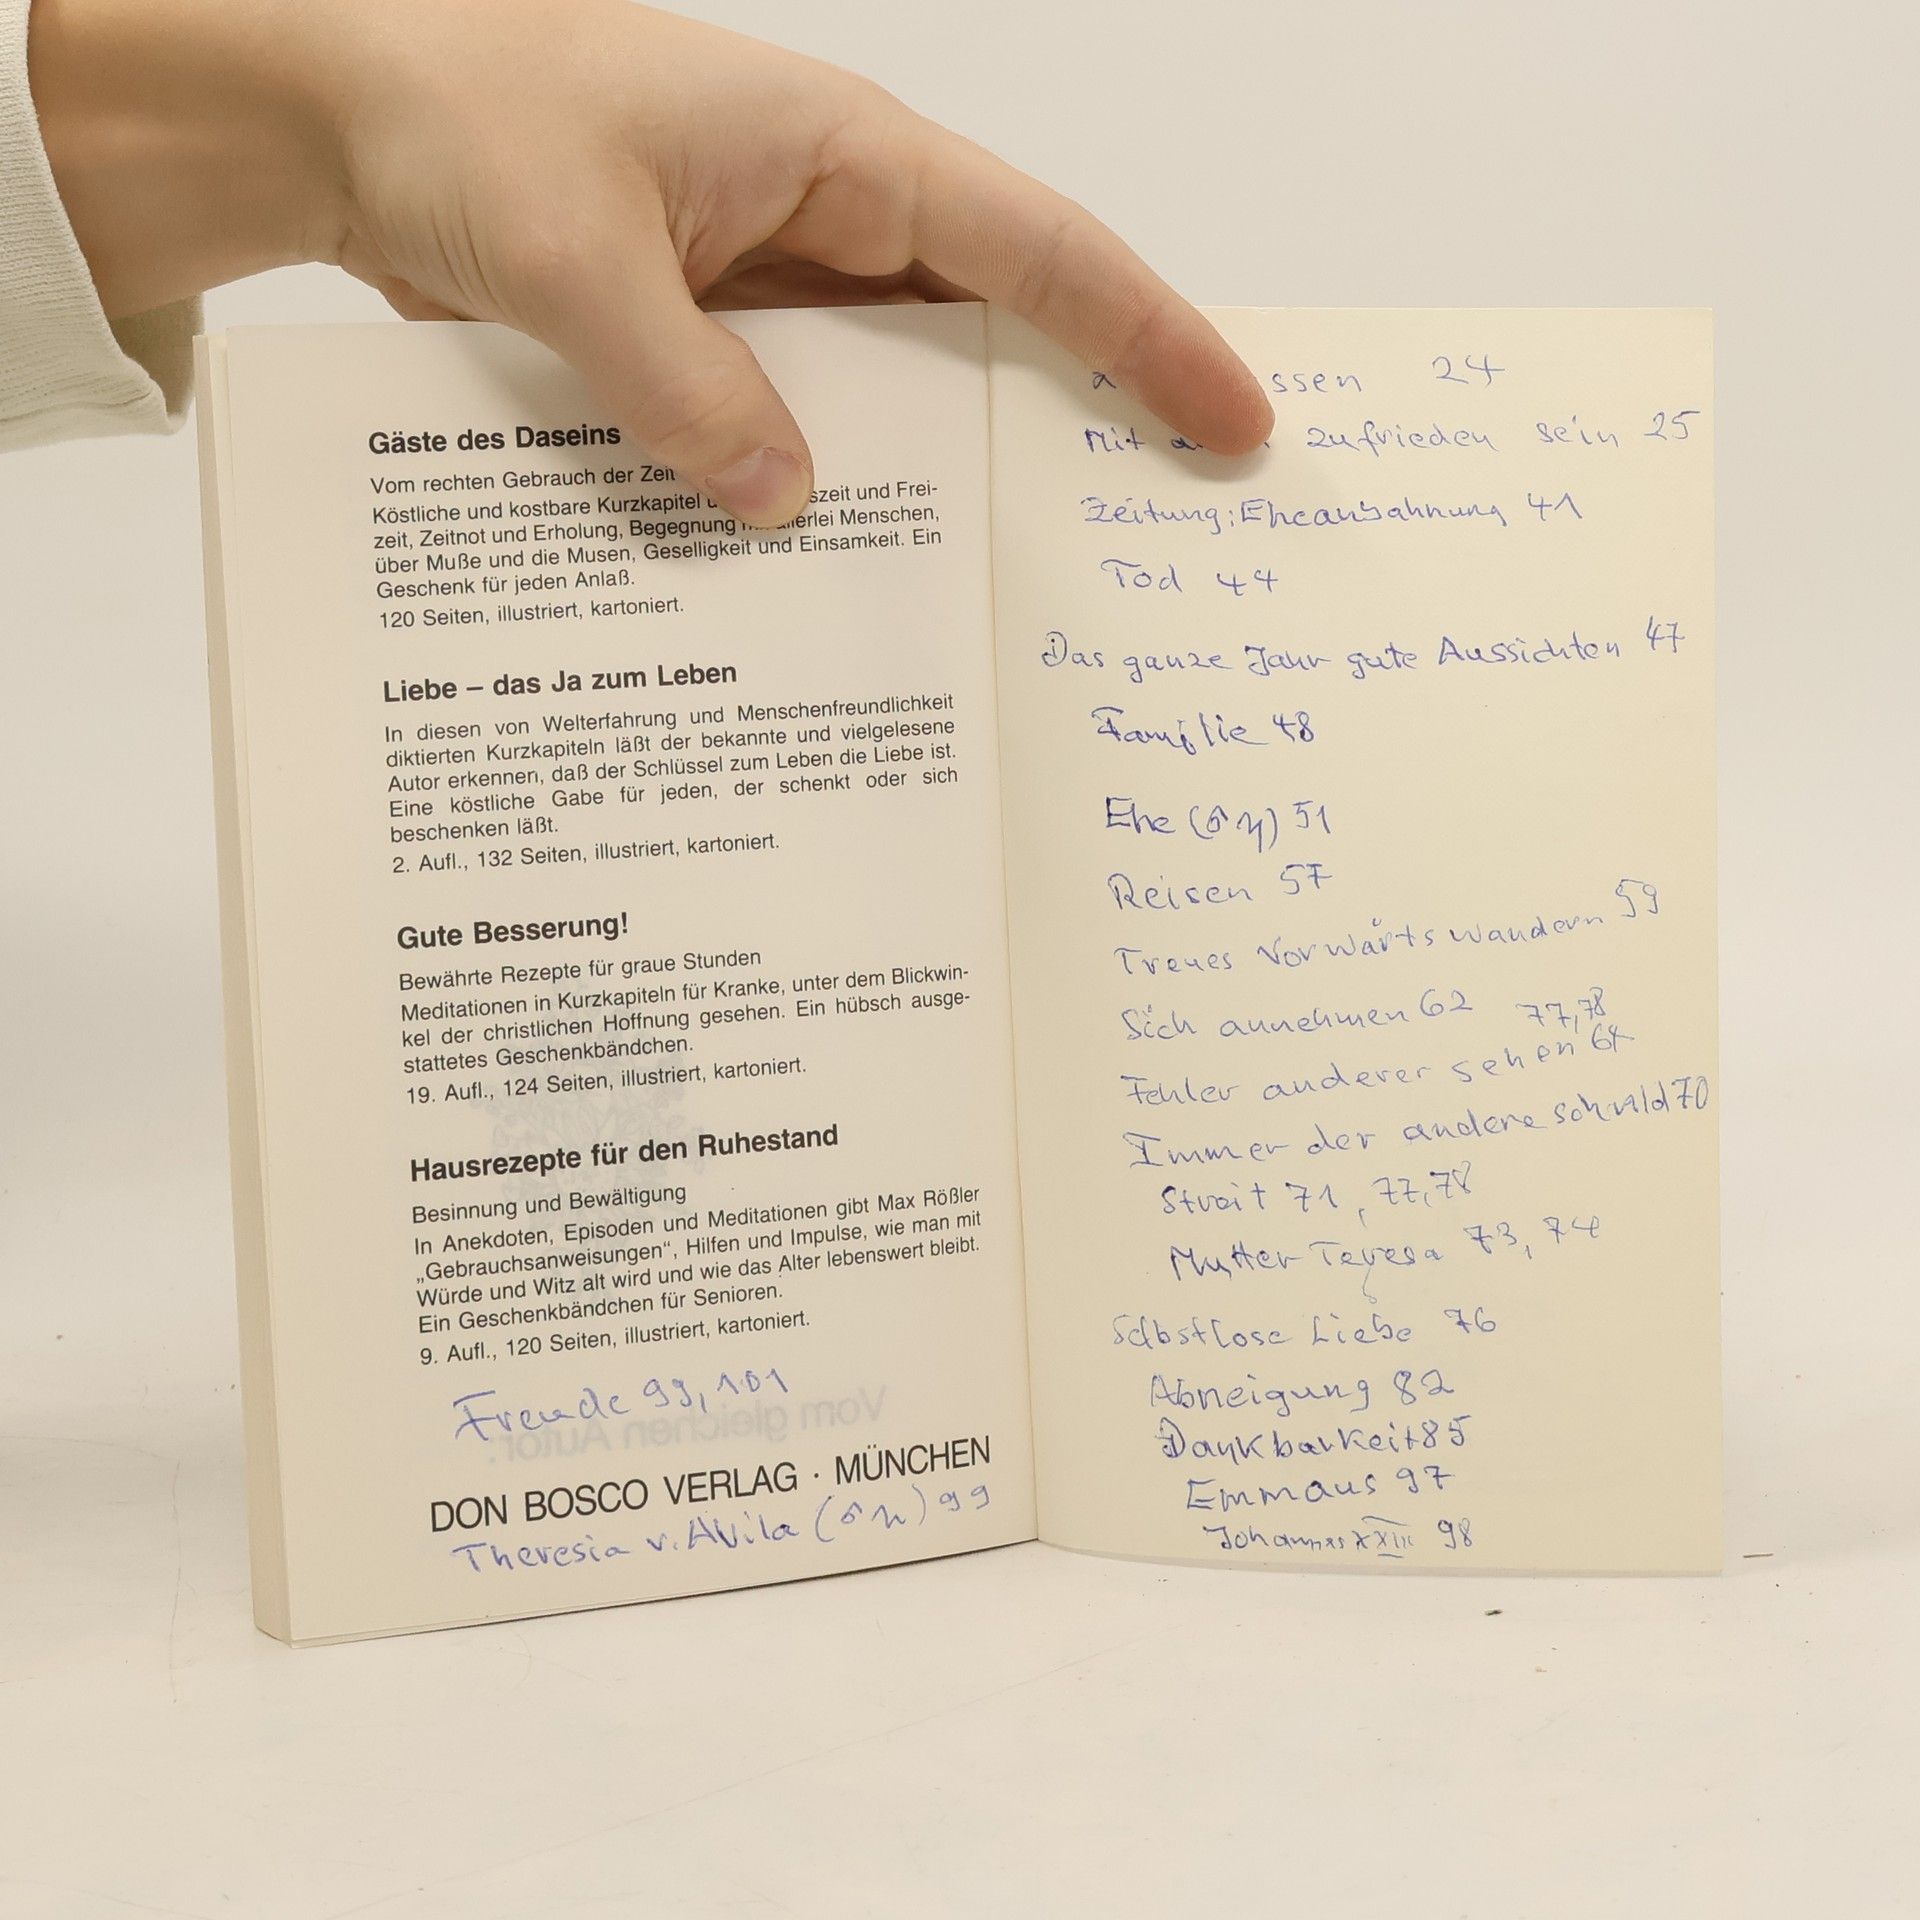 Gäste des Daseins
Vom rechten Gebrauch der Zeit
Köstliche und kostbare Kurzkapitel szeit und Frei-
zeit, Zeitnot und Erholung, Begegnung allerlei Menschen,
über Muße und die Musen, Geselligkeit und Einsamkeit. Ein
Geschenk für jeden Anlaß.
120 Seiten, illustriert, kartoniert.
Liebe – das Ja zum Leben
In diesen von Welterfahrung und Menschenfreundlichkeit
diktierten Kurzkapiteln läßt der bekannte und vielgelesene
Autor erkennen, daß der Schlüssel zum Leben die Liebe ist.
Eine köstliche Gabe für jeden, der schenkt oder sich
beschenken läßt.
2. Aufl., 132 Seiten, illustriert, kartoniert.
Gute Besserung!
Bewährte Rezepte für graue Stunden
Meditationen in Kurzkapiteln für Kranke, unter dem Blickwin-
kel der christlichen Hoffnung gesehen. Ein hübsch ausge-
stattetes Geschenkbändchen.
19. Aufl., 124 Seiten, illustriert, kartoniert.
Hausrezepte für den Ruhestand
Besinnung und Bewältigung
In Anekdoten, Episoden und Meditationen gibt Max Rößler
„Gebrauchsanweisungen“, Hilfen und Impulse, wie man mit
Würde und Witz alt wird und wie das Alter lebenswert bleibt.
Ein Geschenkbändchen für Senioren.
9. Aufl., 120 Seiten, illustriert, kartoniert.
Freude 99, 101
DON BOSCO VERLAG · MÜNCHEN
Theresia v. Avila 99
ssen 24
Mit zufrieden sein 25
Zeitung: Eheanbahnung 41
Tod 44
Das ganze Jahr gute Aussichten 47
Familie 48
Ehe 51
Reisen 57
Treues Vorwärts wandern 59
Sich annehmen 62 77,78
Fehler anderer sehen 64
Immer der andere schuld 70
Streit 71, 77,78
Mutter Teresa 73, 74
Selbstlose Liebe 76
Abneigung 82
Dankbarkeit 85
Emmaus 97
Johannes XXIII 98